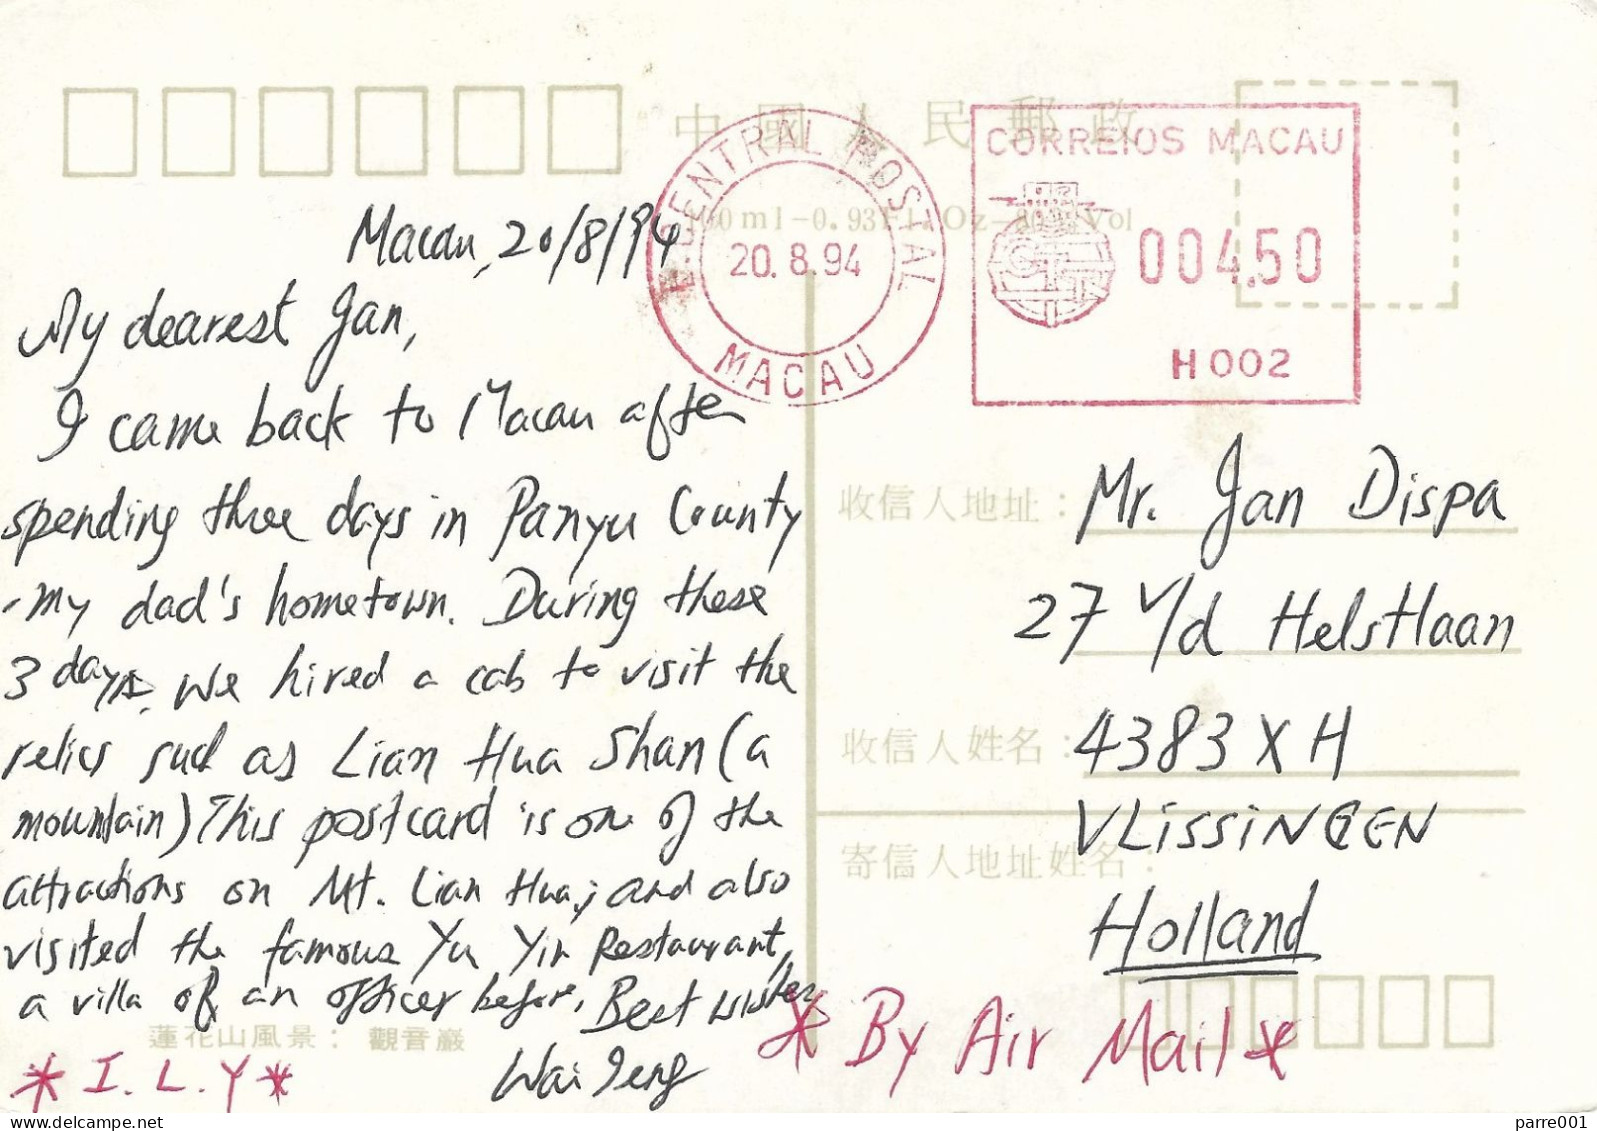 中國人民郵政
CENTRAL POSTAL
20.8.94
MACAU
CORREIOS MACAU
CTT
004.50
H 002
100ml-0.93Fl.Oz-80% Vol
Macau, 20/8/94
My dearest Jan,
I came back to Macau after
spending three days in Panyu County
-my dad's hometown. During these
3 days, we hired a cab to visit the
relics such as Lian Hua Shan (a
mountain) This postcard is one of the
attractions on Mt. Lian Hua; and also
visited the famous Yu Yin Restaurant,
a villa of an officer before. Best wishes
Wai Ieng
蓮花山風景：觀音巖
* I. L. Y *
收信人地址：
Mr. Jan Dispa
27 V/d Helstlaan
收信人姓名：
4383 XH
VLiSSiNGEN
寄信人地址姓名：
Holland
* By Air Mail *
www.delcampe.net
parre001